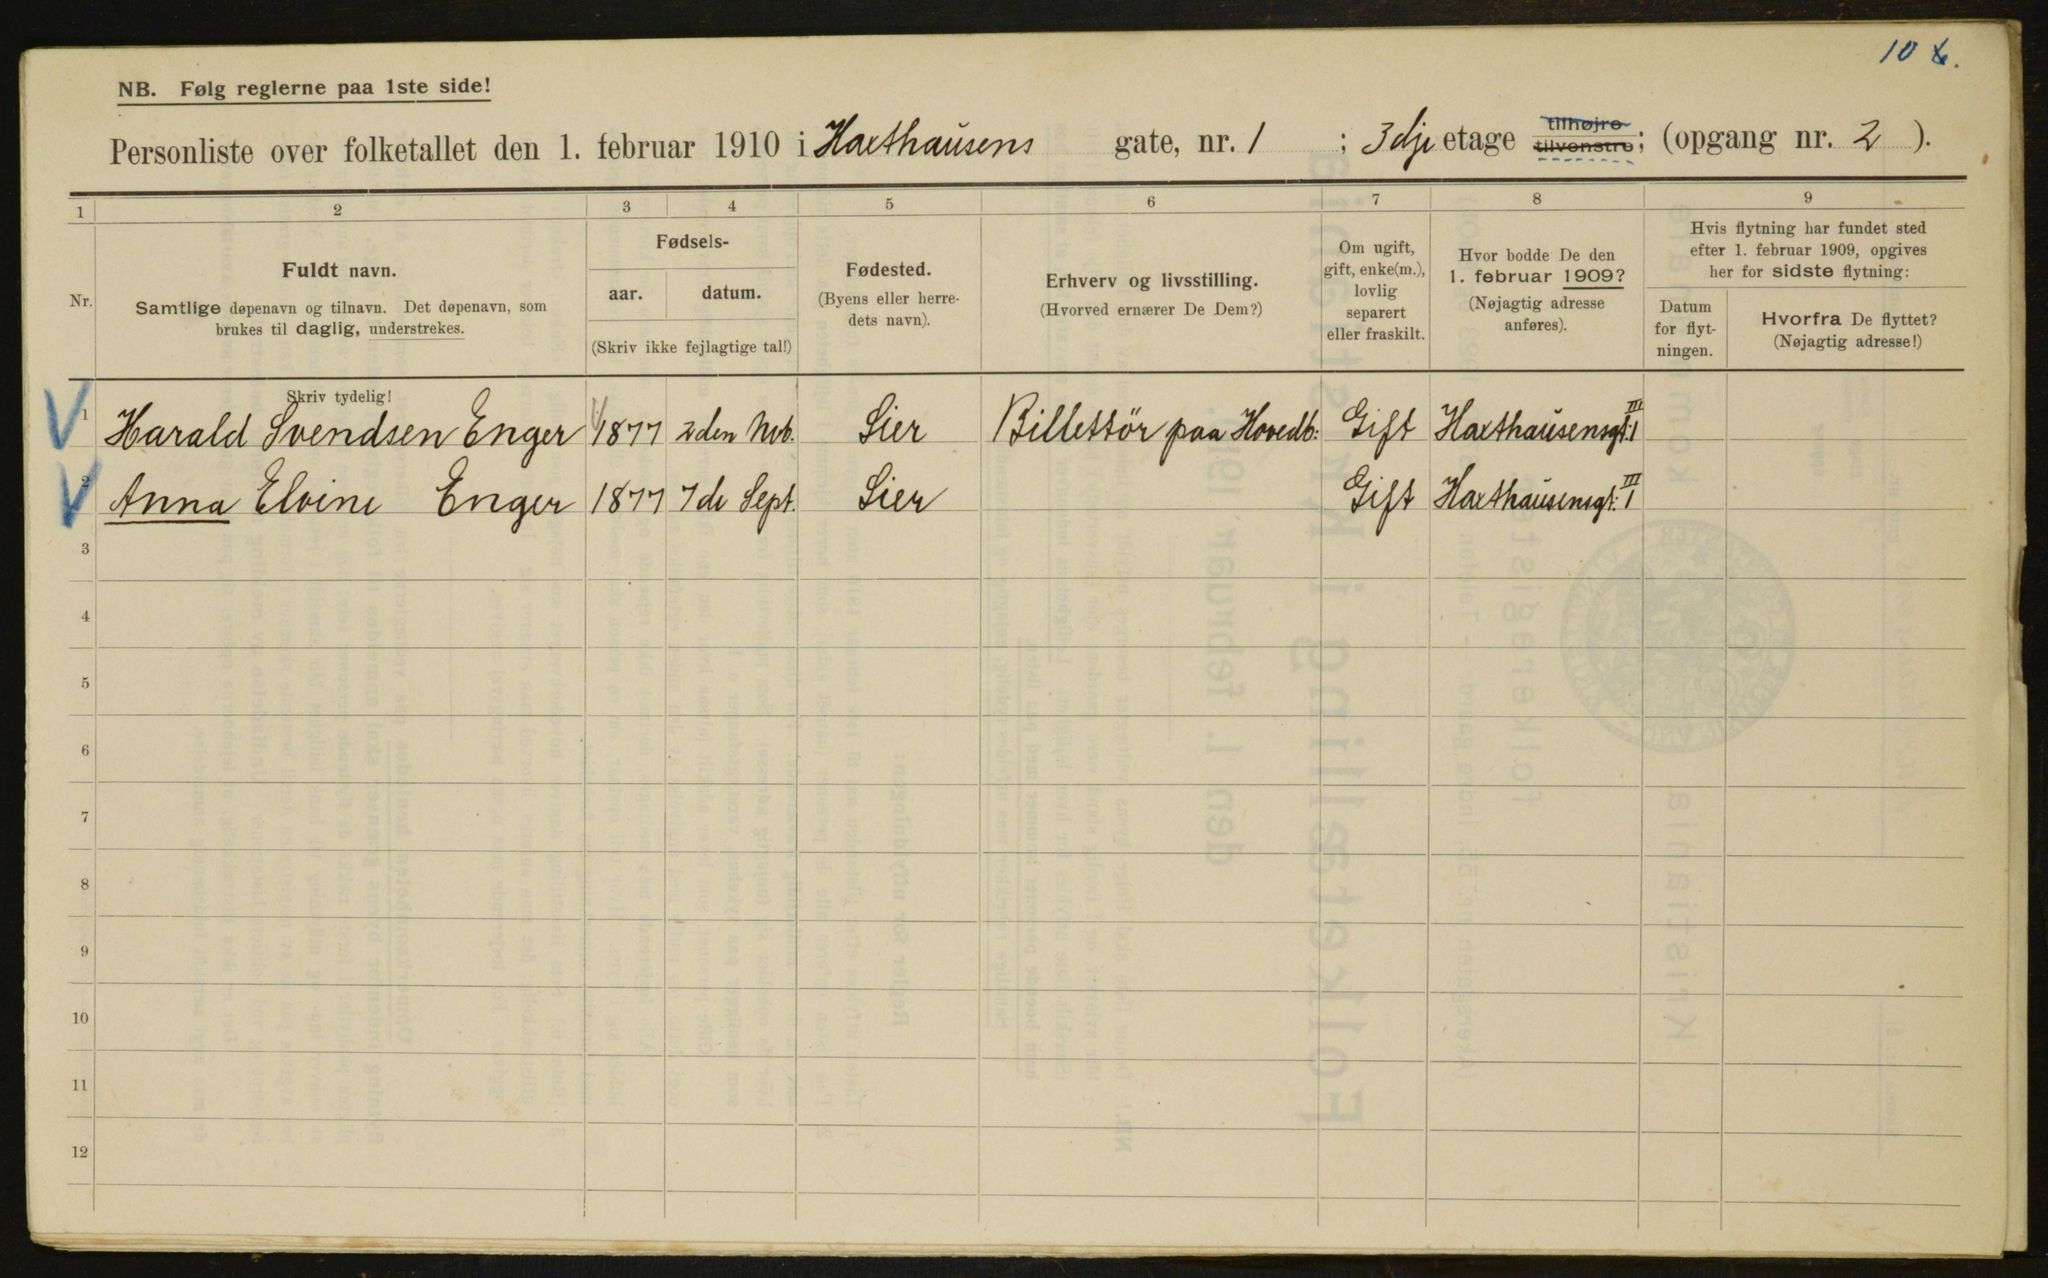 10
NB. Følg reglerne paa 1ste side!
Personliste over folketallet den 1. februar 1910 i Haxthausens gate, nr. 1 ; 3dje etage tilhøjre tilvenstre; (opgang nr. 2 ).
1 2 3 4 5 6 7 8 9
Nr.
Fuldt navn.
Samtlige døpenavn og tilnavn. Det døpenavn, som
brukes til daglig, understrekes.
Fødsels-
aar. datum.
(Skriv ikke fejlagtige tal!)
Fødested.
(Byens eller herre-
dets navn).
Erhverv og livsstilling.
(Hvorved ernærer De Dem?)
Om ugift,
gift, enke(m.),
lovlig
separert
eller fraskilt.
Hvor bodde De den
1. februar 1909?
(Nøjagtig adresse
anføres).
Hvis flytning har fundet sted
efter 1. februar 1909, opgives
her for sidste flytning:
Datum
for flyt-
ningen.
Hvorfra De flyttet?
(Nøjagtig adresse!)
Skriv tydelig!
1 Harald Svendsen Enger 1877 2den Lier Billettör paa Hovedb: Gift Haxthausensgt. 1 III
2 Anna Elvine Enger 1877 7de Sept. Lier Gift Haxthausensgt. 1 III
3
4
5
6
7
8
9
10
11
12